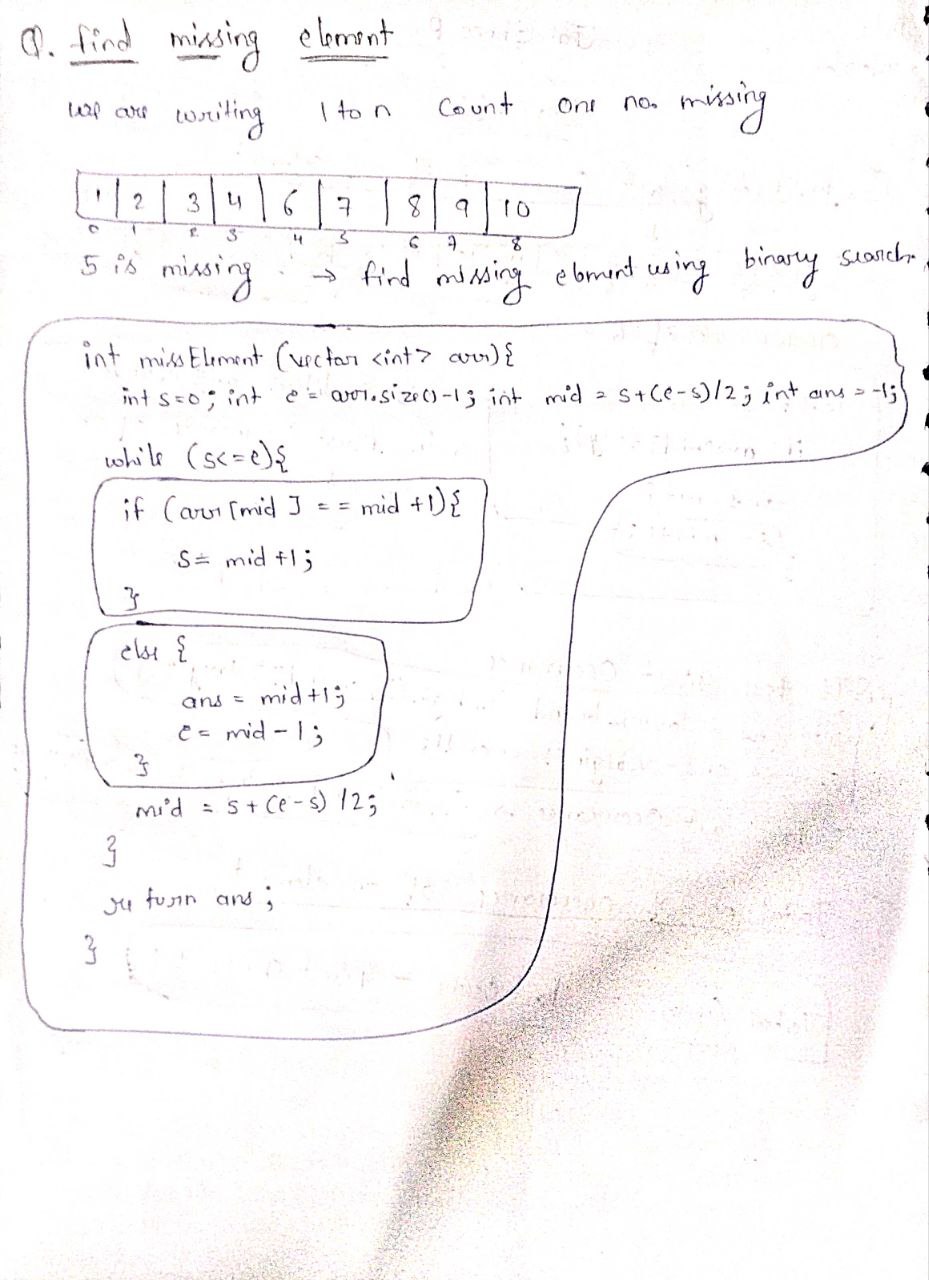 Q. find missing element
we are writing 1 to n count one no. missing
1 2 3 4 6 7 8 9 10
0 1 2 3 4 5 6 7 8
5 is missing → find missing element using binary search
int missElement (vector <int> arr){
int s=0; int e = arr.size()-1; int mid = s+(e-s)/2; int ans = -1;
while (s<=e){
if (arr[mid] == mid +1){
s= mid +1;
}
else {
ans = mid+1;
e= mid-1;
}
mid = s+(e-s)/2;
}
return ans;
}